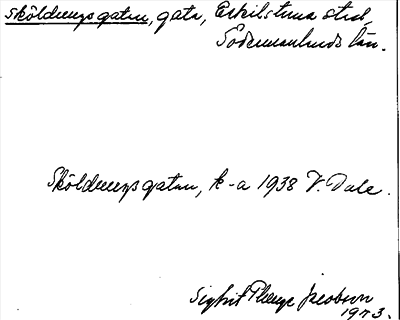 Sköldungagatan, gata, Eskilstuna stad,
Södermanlands län.
Sköldungagatan, k-a 1938 V. Dale.
Sigbrit Plænge Jacobson
1973.